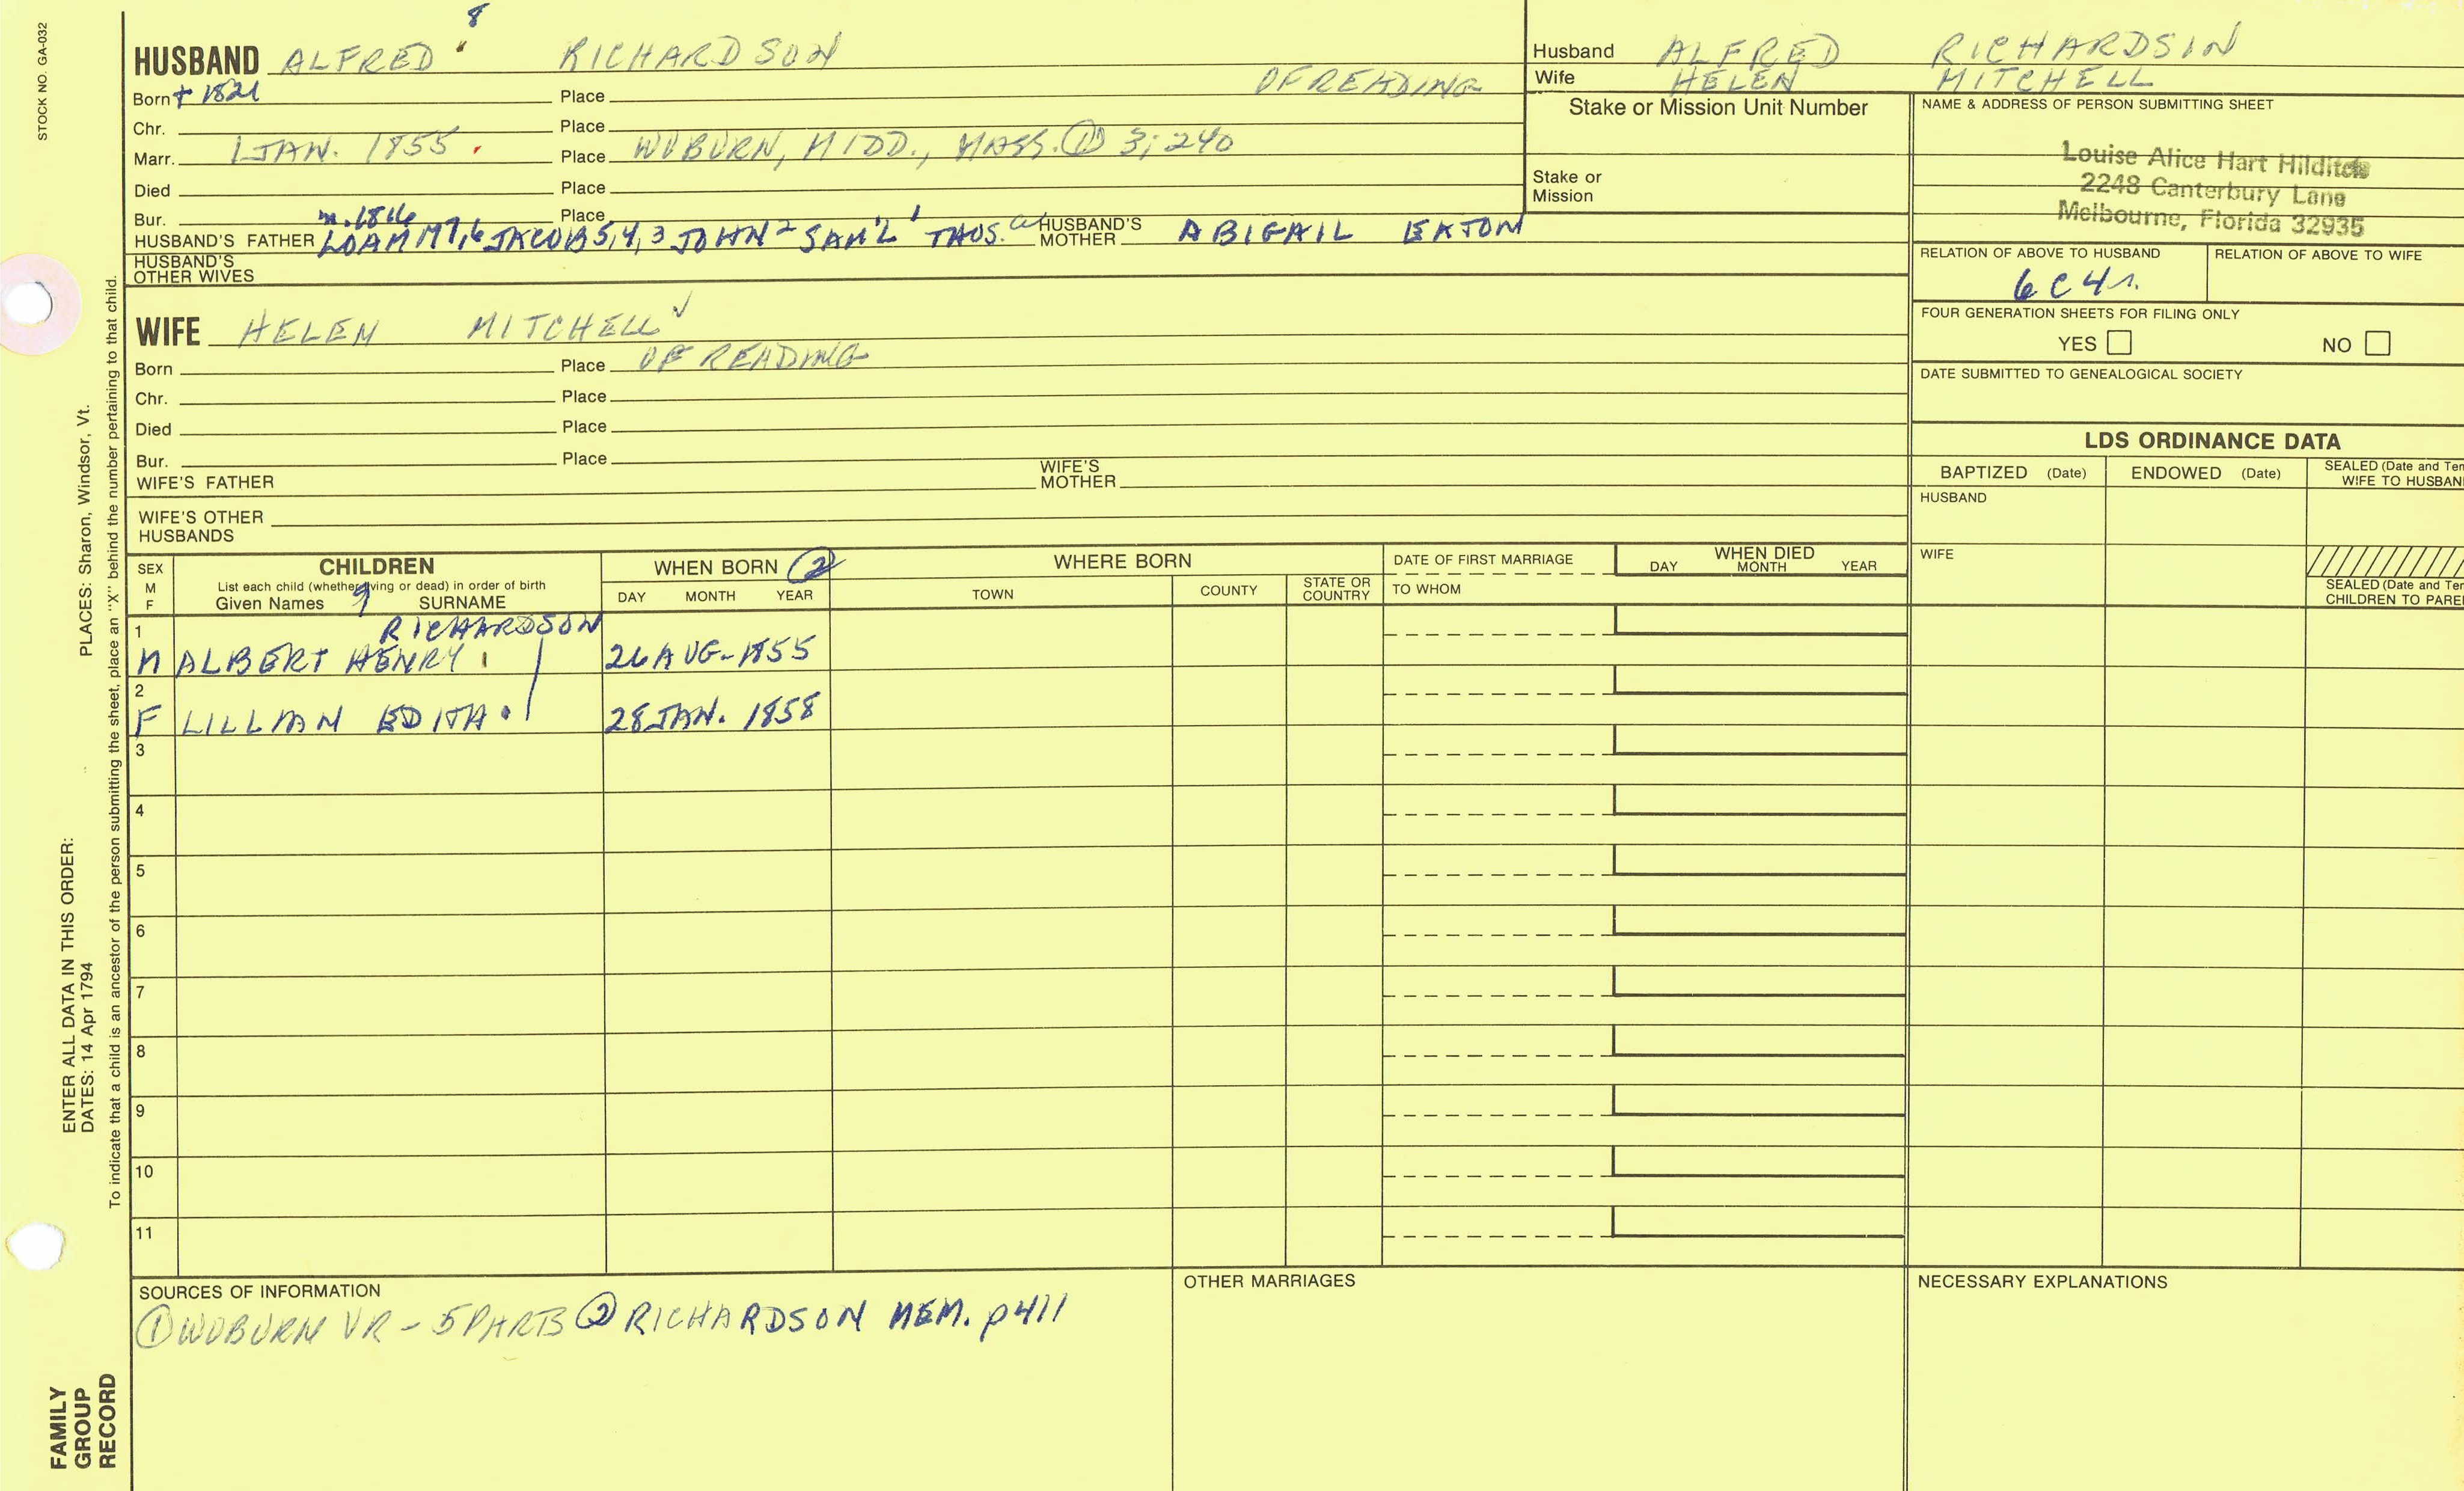 STOCK NO. GA-032
8
HUSBAND ALFRED RICHARDSON
Born + 1821 Place OF READING
Chr. Place
Marr. 1 JAN. 1855 Place WOBURN, MIDD., MASS. ① 3; 240
Died Place
Bur. Place
m. 1816
HUSBAND'S FATHER LOAMMI 7,6 JACOB 5,4,3 JOHN 2 SAM'L 1 THOS. a HUSBAND'S MOTHER ABIGAIL EATON
HUSBAND'S OTHER WIVES
WIFE HELEN MITCHELL ✓
Born Place OF READING
Chr. Place
Died Place
Bur. Place
WIFE'S FATHER WIFE'S MOTHER
WIFE'S OTHER HUSBANDS
Husband ALFRED RICHARDSIN
Wife HELEN MITCHELL
Stake or Mission Unit Number
Stake or Mission
NAME & ADDRESS OF PERSON SUBMITTING SHEET
Louise Alice Hart Hilditch
2248 Canterbury Lane
Melbourne, Florida 32935
RELATION OF ABOVE TO HUSBAND RELATION OF ABOVE TO WIFE
6C4r.
FOUR GENERATION SHEETS FOR FILING ONLY
YES NO
DATE SUBMITTED TO GENEALOGICAL SOCIETY
LDS ORDINANCE DATA
BAPTIZED (Date) ENDOWED (Date) SEALED (Date and Tem
WIFE TO HUSBAN
HUSBAND
WIFE
SEALED (Date and Tem
CHILDREN TO PARE
SEX M F
CHILDREN
List each child (whether living or dead) in order of birth
Given Names 9 SURNAME
WHEN BORN ②
DAY MONTH YEAR
WHERE BORN
TOWN COUNTY STATE OR COUNTRY
DATE OF FIRST MARRIAGE
TO WHOM
WHEN DIED
DAY MONTH YEAR
1 RICHARDSON
M ALBERT HENRY 26 AUG-1855
2
F LILLIAN EDITH 28 JAN. 1858
3
4
5
6
7
8
9
10
11
SOURCES OF INFORMATION
① WOBURN VR - 5 PARTS ② RICHARDSON MEM. p411
OTHER MARRIAGES
NECESSARY EXPLANATIONS
PLACES: Sharon, Windsor, Vt.
To indicate that a child is an ancestor of the person submitting the sheet, place an "X" behind the number pertaining to that child.
ENTER ALL DATA IN THIS ORDER:
DATES: 14 Apr 1794
FAMILY
GROUP
RECORD